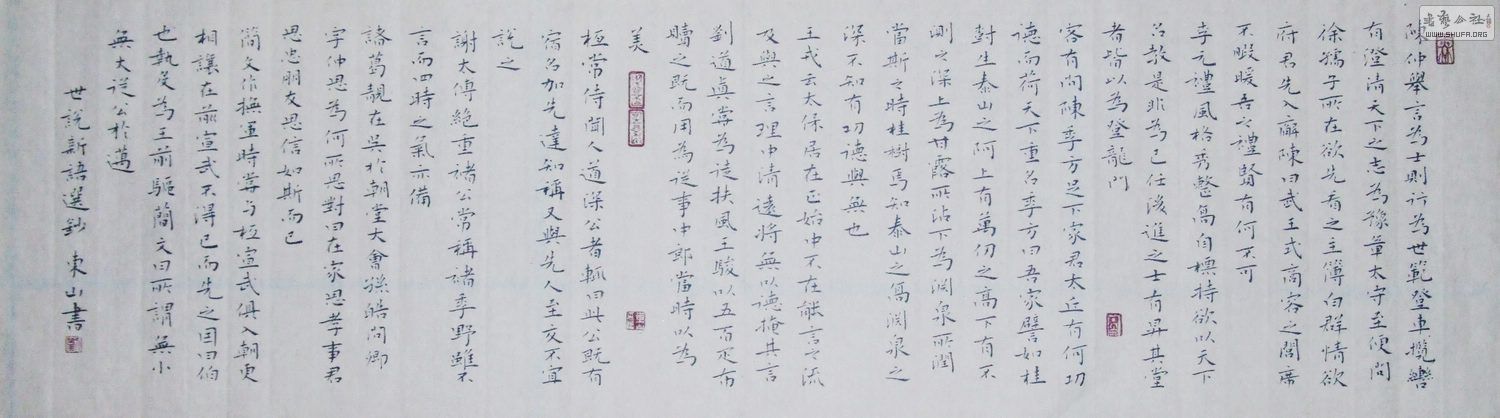 陳仲舉言為士則行為世範登車攬轡
有澄清天下之志為豫章太守至便問
徐孺子所在欲先看之主簿白群情欲
府君先入廨陳曰武王式商容之閭席
不暇暖吾之禮賢有何不可
李元禮風格秀整高自標持欲以天下
名教是非為己任後進之士有昇其堂
者皆以為登龍門
客有問陳季方足下家君太丘有何功
德而荷天下重名季方曰吾家譬如桂
對生泰山之阿上有萬仞之高下有不
測之深上為甘露所沾下為淵泉所潤
當斯之時桂樹焉知泰山之高淵泉之
深不知有功德與無也
王戎云太保居在正始中不在能言之流
及與之言理中清遠將無以德掩其言
劉道真嘗為徒扶風王駿以五百疋布
贖之既而用為從事中郎當時以為
美
桓常侍聞人道深公者輒曰此公既有
宿名加先達知稱又與先人至交不宜
說之
謝太傅絕重褚公常稱褚季野雖不
言而四時之氣亦備
諸葛靚在吳於朝堂大會孫皓問卿
字仲思為何所思對曰在家思孝事君
思忠朋友思信如斯而已
簡文作撫軍時嘗與桓宣武俱入朝更
相讓在前宣武不得已而先之因曰伯
也執殳為王前驅簡文曰所謂無小
無大從公於邁
世說新語選鈔 東山書
書藝公社
WWW.SHUFA.ORG